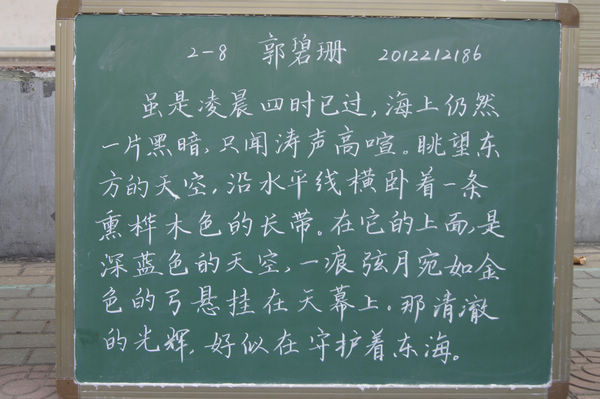 2-8 郭碧珊 2012212186
虽是凌晨四时已过,海上仍然
一片黑暗,只闻涛声高喧。眺望东
方的天空,沿水平线横卧着一条
熏桦木色的长带。在它的上面,是
深蓝色的天空,一痕弦月宛如金
色的弓悬挂在天幕上。那清澈
的光辉,好似在守护着东海。